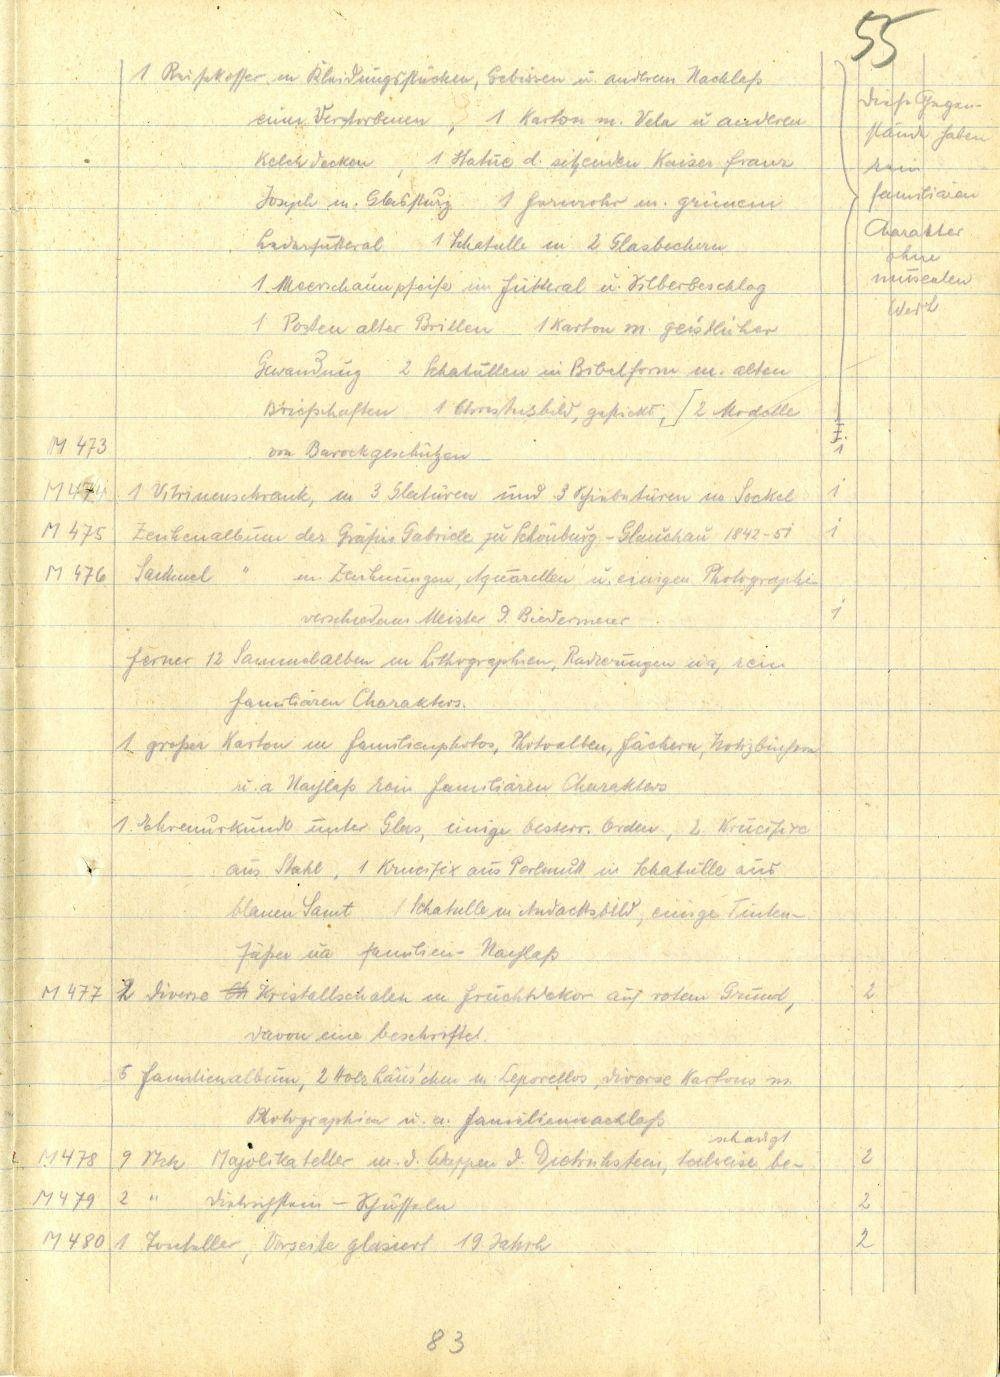 55
1 Reisekoffer m Kleidungsstücken, Gebissen u. anderem Nachlaß
einer Verstorbenen, 1 Karton m. Vela u anderen
Kelchdecken, 1 Statue d. sitzenden Kaiser Franz
Joseph m. Glassturz 1 Fernrohr m. grünem
Lederfutteral 1 Schatulle m 2 Glasbechern
1 Meerschaumpfeife im Futteral u. Silberbeschlag
1 Posten alter Brillen 1 Karton m. geistlicher
Gewandung 2 Schatullen in Bibelform m. alten
Briefschaften 1 Christusbild, gestickt, [2 Modelle
Diese Gegen-
stände haben
rein
familiären
Charakter
ohne
musealen
Wert
M 473 von Barockgeschützen 1
M 474 1 Vitrinenschrank, m 3 Glastüren und 3 Schiebetüren im Sockel 1
M 475 Zeichenalbum der Gräfin Gabriele zu Schönburg-Glauchau 1842-51 1
M 476 Sammel " m. Zeichnungen, Aquarellen u. einigen Photographi
verschiedener Meister d. Biedermeier 1
ferner 12 Sammelalben m Lithographien, Radierungen u a, rein
familiären Charakters.
1 großer Karton m Familienphotos, Photoalben, Fächern, Notizbüchern
u. a Nachlaß rein familiären Charakters
1 Ehrenurkunde unter Glas, einige oesterr. Orden, 2 Krucifixe
aus Stahl, 1 Krucifix aus Perlmutt in Schatulle aus
blauen Samt 1 Schatulle m Andachtsbild, einige Tinten-
fäßer u a familien-Nachlaß
M 477 2 diverse Kristallschalen m Fruchtdekor auf rotem Grund, 2
davon eine beschriftet.
5 Familienalbum, 2 Holzhäuschen m Leporellos, diverse Kartons m.
Photographien u. a. Familiennachlaß
M 478 9 Stck Majolikateller m. d. Wappen d. Dietrichstein, teilweise be- 2
schädigt
M 479 2 " Dietrichstein-Schüsseln 2
M 480 1 Tonteller, Vorseite glasiert 19. Jahrh 2
83